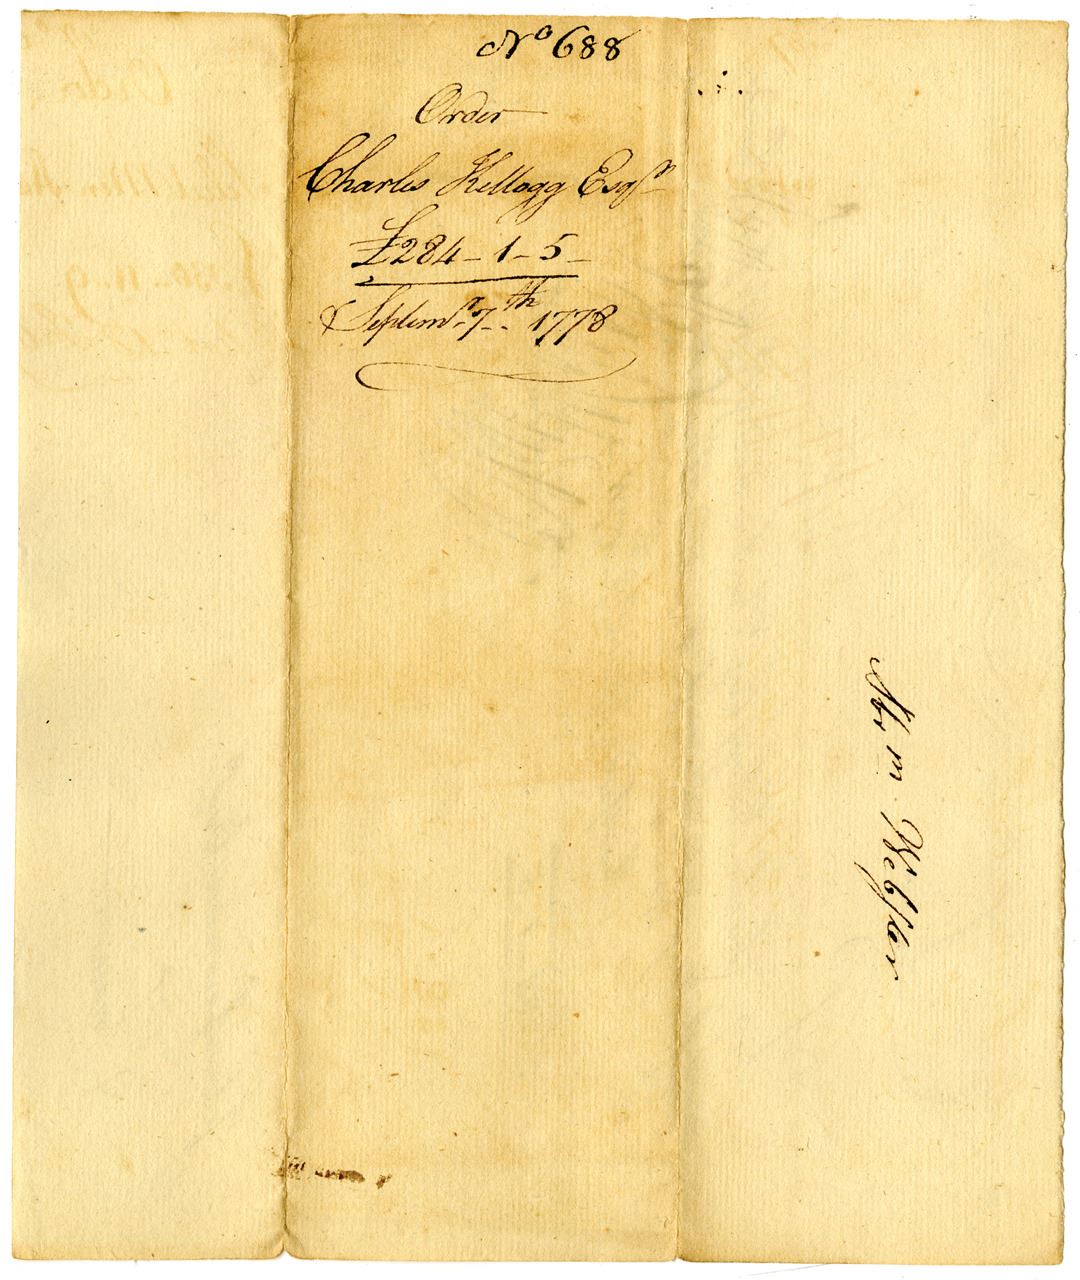 No 688
Order
Charles Kellogg Esqr
£284-1-5-
Septemr. 7th. 1778
Abrm Webster